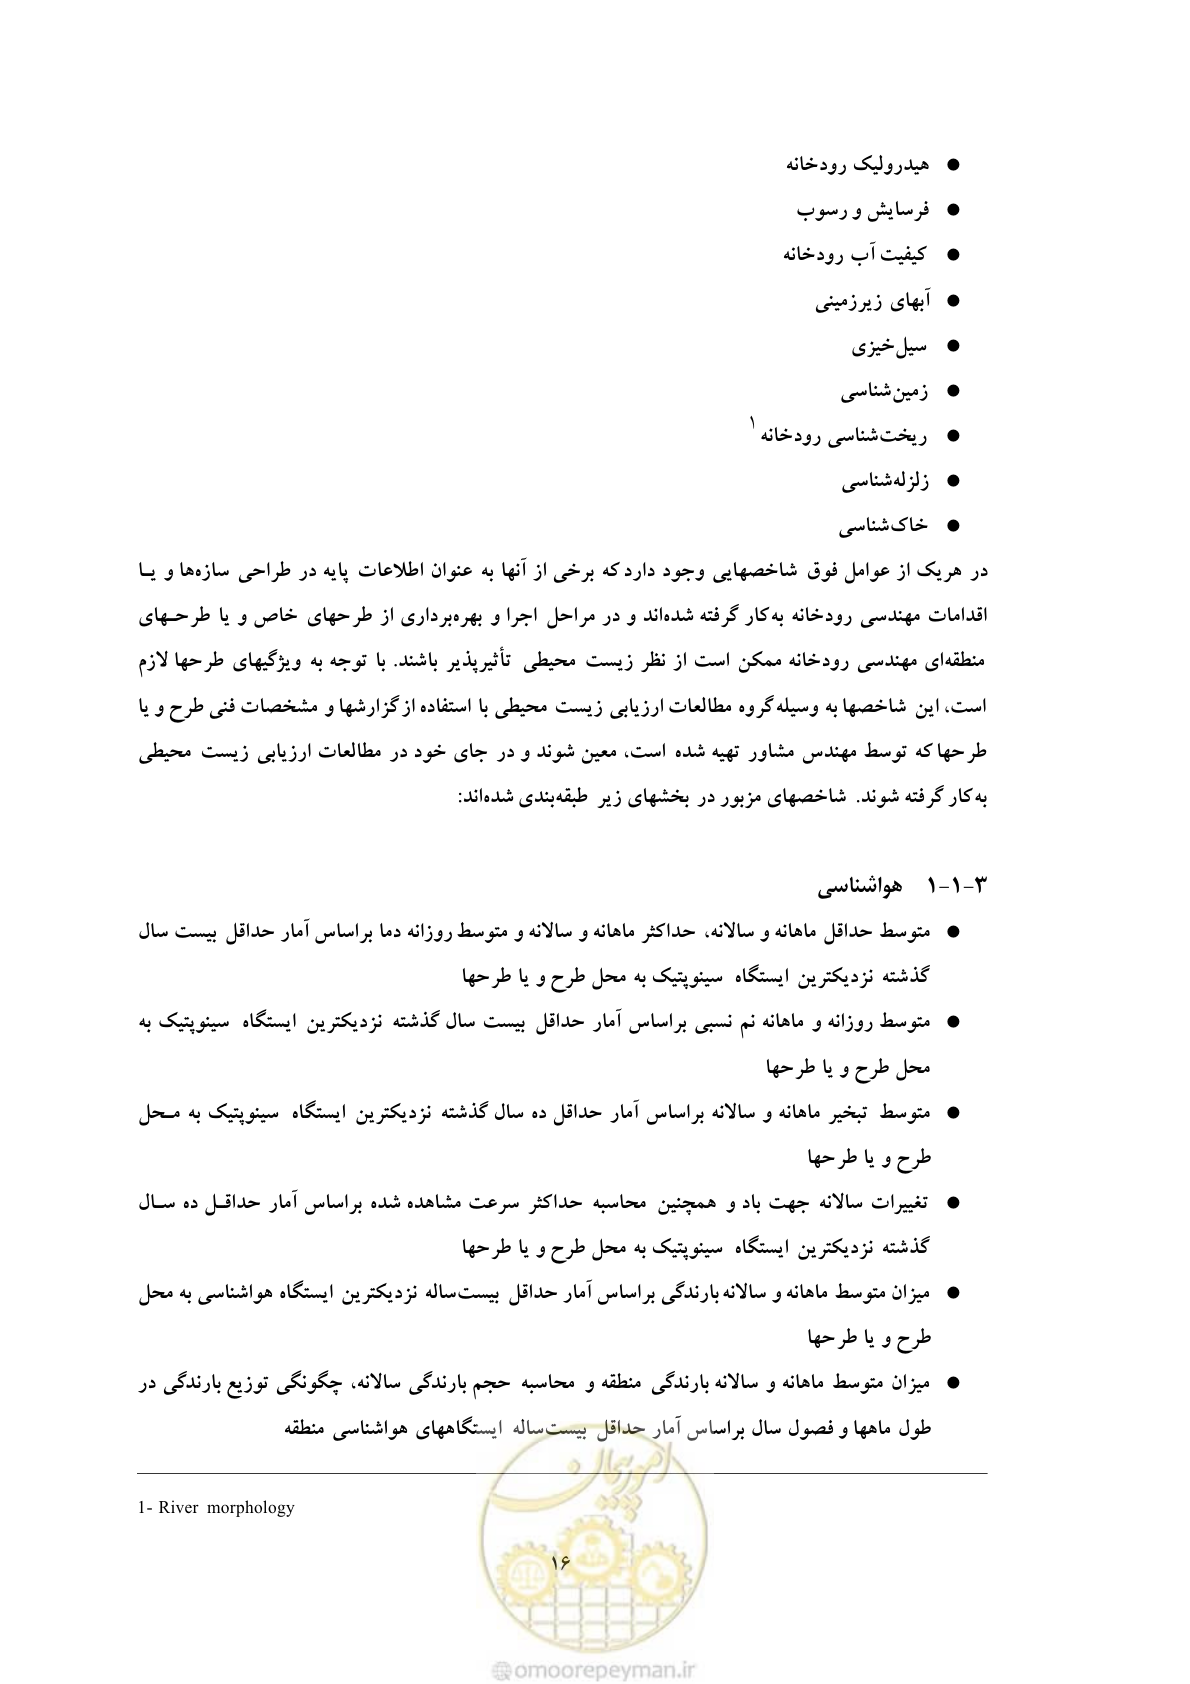 ● هیدرولیک رودخانه
● فرسایش و رسوب
● کیفیت آب رودخانه
● آبهای زیرزمینی
● سیل‌خیزی
● زمین‌شناسی
● ریخت‌شناسی رودخانه۱
● زلزله‌شناسی
● خاک‌شناسی
در هریک از عوامل فوق شاخصهایی وجود دارد که برخی از آنها به عنوان اطلاعات پایه در طراحی سازه‌ها و یـا
اقدامات مهندسی رودخانه به‌کار گرفته شده‌اند و در مراحل اجرا و بهره‌برداری از طرحهای خاص و یا طرحـهای
منطقه‌ای مهندسی رودخانه ممکن است از نظر زیست محیطی تأثیرپذیر باشند. با توجه به ویژگیهای طرحها لازم
است، این شاخصها به وسیله گروه مطالعات ارزیابی زیست محیطی با استفاده از گزارشها و مشخصات فنی طرح و یا
طرحها که توسط مهندس مشاور تهیه شده است، معین شوند و در جای خود در مطالعات ارزیابی زیست محیطی
به‌کار گرفته شوند. شاخصهای مزبور در بخشهای زیر طبقه‌بندی شده‌اند:
۳-۱-۱ هواشناسی
● متوسط حداقل ماهانه و سالانه، حداکثر ماهانه و سالانه و متوسط روزانه دما براساس آمار حداقل بیست سال
گذشته نزدیکترین ایستگاه سینوپتیک به محل طرح و یا طرحها
● متوسط روزانه و ماهانه نم نسبی براساس آمار حداقل بیست سال گذشته نزدیکترین ایستگاه سینوپتیک به
محل طرح و یا طرحها
● متوسط تبخیر ماهانه و سالانه براساس آمار حداقل ده سال گذشته نزدیکترین ایستگاه سینوپتیک به مـحل
طرح و یا طرحها
● تغییرات سالانه جهت باد و همچنین محاسبه حداکثر سرعت مشاهده شده براساس آمار حداقـل ده سـال
گذشته نزدیکترین ایستگاه سینوپتیک به محل طرح و یا طرحها
● میزان متوسط ماهانه و سالانه بارندگی براساس آمار حداقل بیست‌ساله نزدیکترین ایستگاه هواشناسی به محل
طرح و یا طرحها
● میزان متوسط ماهانه و سالانه بارندگی منطقه و محاسبه حجم بارندگی سالانه، چگونگی توزیع بارندگی در
طول ماهها و فصول سال براساس آمار حداقل بیست‌ساله ایستگاههای هواشناسی منطقه
امورپیمان
1- River morphology
۱۶
@omoorepeyman.ir